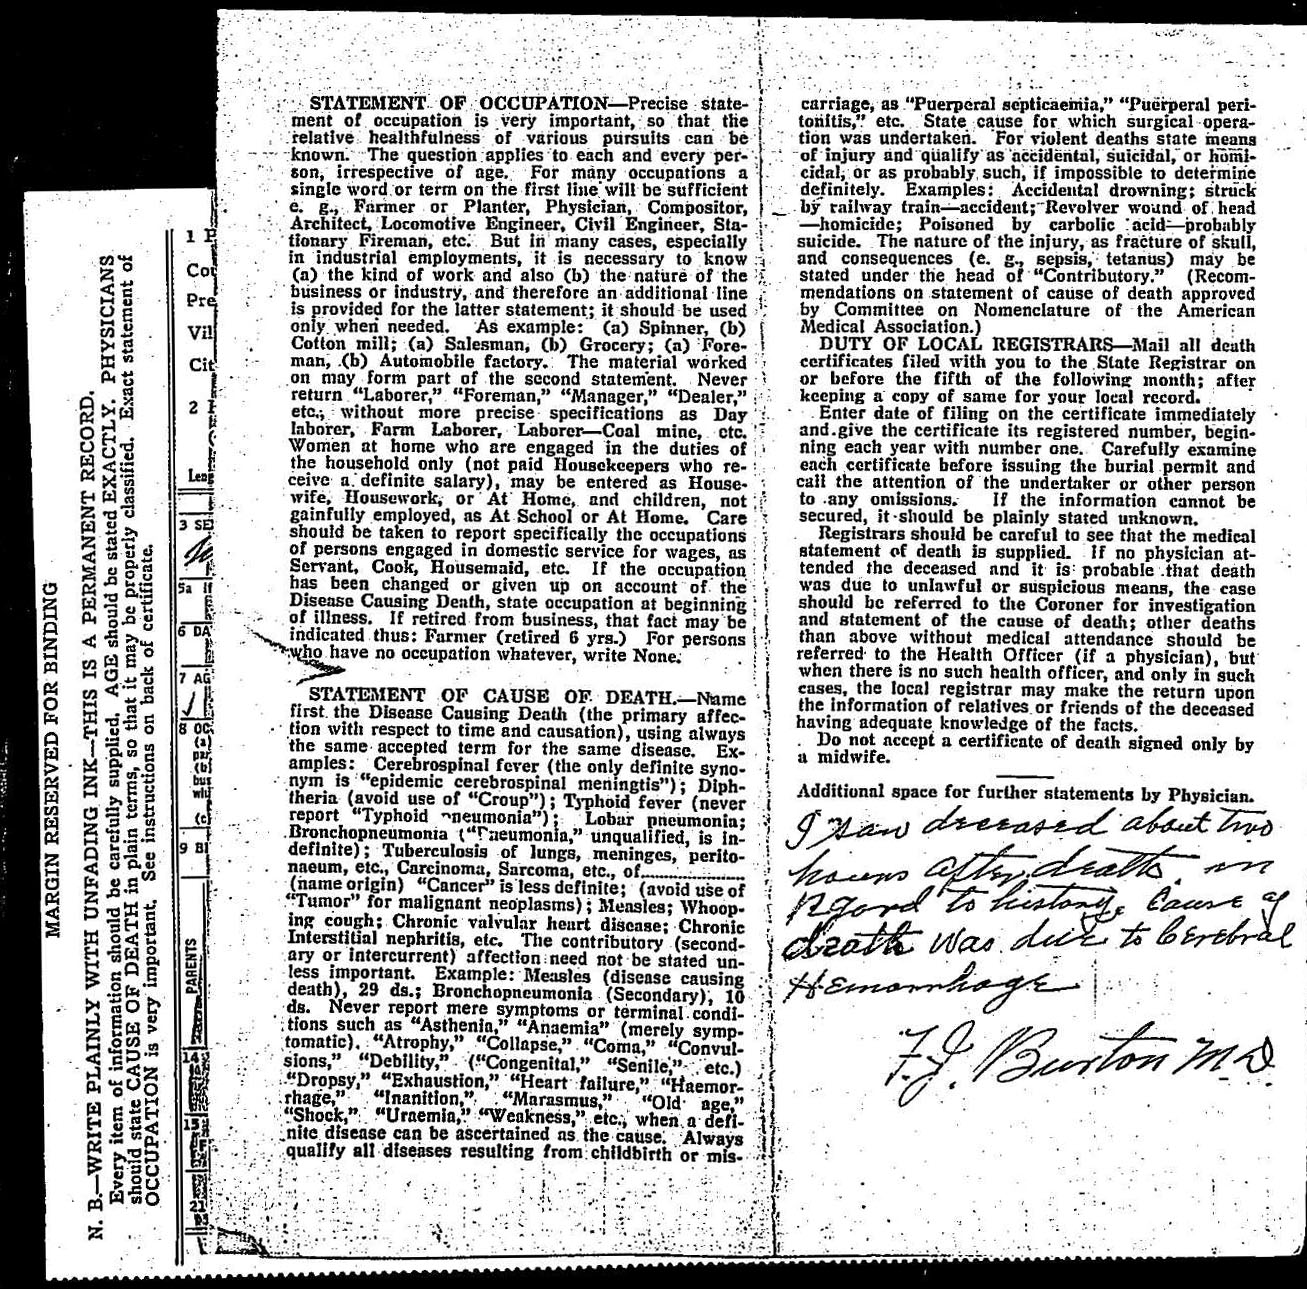 MARGIN RESERVED FOR BINDING
N. B.—WRITE PLAINLY WITH UNFADING INK—THIS IS A PERMANENT RECORD.
Every item of information should be carefully supplied. AGE should be stated EXACTLY. PHYSICIANS
should state CAUSE OF DEATH in plain terms, so that it may be properly classified. Exact statement of
OCCUPATION is very important. See instructions on back of certificate.
1 P
Cou
Pre
Vil
Cit
2 F
Leng
3 SE
5a If
6 DA
7 AG
8 OC
(a)
(b)
but
whi
(c
9 BI
PARENTS
14
15
21
STATEMENT OF OCCUPATION—Precise state-
ment of occupation is very important, so that the
relative healthfulness of various pursuits can be
known. The question applies to each and every per-
son, irrespective of age. For many occupations a
single word or term on the first line will be sufficient
e. g., Farmer or Planter, Physician, Compositor,
Architect, Locomotive Engineer, Civil Engineer, Sta-
tionary Fireman, etc. But in many cases, especially
in industrial employments, it is necessary to know
(a) the kind of work and also (b) the nature of the
business or industry, and therefore an additional line
is provided for the latter statement; it should be used
only when needed. As example: (a) Spinner, (b)
Cotton mill; (a) Salesman, (b) Grocery; (a) Fore-
man, (b) Automobile factory. The material worked
on may form part of the second statement. Never
return "Laborer," "Foreman," "Manager," "Dealer,"
etc., without more precise specifications as Day
laborer, Farm Laborer, Laborer—Coal mine, etc.
Women at home who are engaged in the duties of
the household only (not paid Housekeepers who re-
ceive a definite salary), may be entered as House-
wife, Housework, or At Home, and children, not
gainfully employed, as At School or At Home. Care
should be taken to report specifically the occupations
of persons engaged in domestic service for wages, as
Servant, Cook, Housemaid, etc. If the occupation
has been changed or given up on account of the
Disease Causing Death, state occupation at beginning
of illness. If retired from business, that fact may be
indicated thus: Farmer (retired 6 yrs.) For persons
who have no occupation whatever, write None.
STATEMENT OF CAUSE OF DEATH.—Name
first the Disease Causing Death (the primary affec-
tion with respect to time and causation), using always
the same accepted term for the same disease. Ex-
amples: Cerebrospinal fever (the only definite syno-
nym is "epidemic cerebrospinal meningtis"); Diph-
theria (avoid use of "Croup"); Typhoid fever (never
report "Typhoid pneumonia"); Lobar pneumonia;
Bronchopneumonia ("Pneumonia," unqualified, is in-
definite); Tuberculosis of lungs, meninges, perito-
naeum, etc., Carcinoma, Sarcoma, etc., of..................
(name origin) "Cancer" is less definite; (avoid use of
"Tumor" for malignant neoplasms); Measles; Whoop-
ing cough; Chronic valvular heart disease; Chronic
Interstitial nephritis, etc. The contributory (second-
ary or intercurrent) affection need not be stated un-
less important. Example: Measles (disease causing
death), 29 ds.; Bronchopneumonia (Secondary), 10
ds. Never report mere symptoms or terminal condi-
tions such as "Asthenia," "Anaemia" (merely symp-
tomatic), "Atrophy," "Collapse," "Coma," "Convul-
sions," "Debility," ("Congenital," "Senile," etc.)
"Dropsy," "Exhaustion," "Heart failure," "Haemor-
rhage," "Inanition," "Marasmus," "Old age,"
"Shock," "Uraemia," "Weakness," etc., when a defi-
nite disease can be ascertained as the cause. Always
qualify all diseases resulting from childbirth or mis-
carriage, as "Puerperal septicaemia," "Puerperal peri-
tonitis," etc. State cause for which surgical opera-
tion was undertaken. For violent deaths state means
of injury and qualify as accidental, suicidal, or homi-
cidal, or as probably such, if impossible to determine
definitely. Examples: Accidental drowning; struck
by railway train—accident; Revolver wound of head
—homicide; Poisoned by carbolic acid—probably
suicide. The nature of the injury, as fracture of skull,
and consequences (e. g., sepsis, tetanus) may be
stated under the head of "Contributory." (Recom-
mendations on statement of cause of death approved
by Committee on Nomenclature of the American
Medical Association.)
DUTY OF LOCAL REGISTRARS—Mail all death
certificates filed with you to the State Registrar on
or before the fifth of the following month; after
keeping a copy of same for your local record.
Enter date of filing on the certificate immediately
and give the certificate its registered number, begin-
ning each year with number one. Carefully examine
each certificate before issuing the burial permit and
call the attention of the undertaker or other person
to any omissions. If the information cannot be
secured, it should be plainly stated unknown.
Registrars should be careful to see that the medical
statement of death is supplied. If no physician at-
tended the deceased and it is probable that death
was due to unlawful or suspicious means, the case
should be referred to the Coroner for investigation
and statement of the cause of death; other deaths
than above without medical attendance should be
referred to the Health Officer (if a physician), but
when there is no such health officer, and only in such
cases, the local registrar may make the return upon
the information of relatives or friends of the deceased
having adequate knowledge of the facts.
Do not accept a certificate of death signed only by
a midwife.
Additional space for further statements by Physician.
I saw deceased about two
hours after death. in
regard to history, Cause of
death was due to Cerebral
Hemorrhage
F. J. Burton M.D.